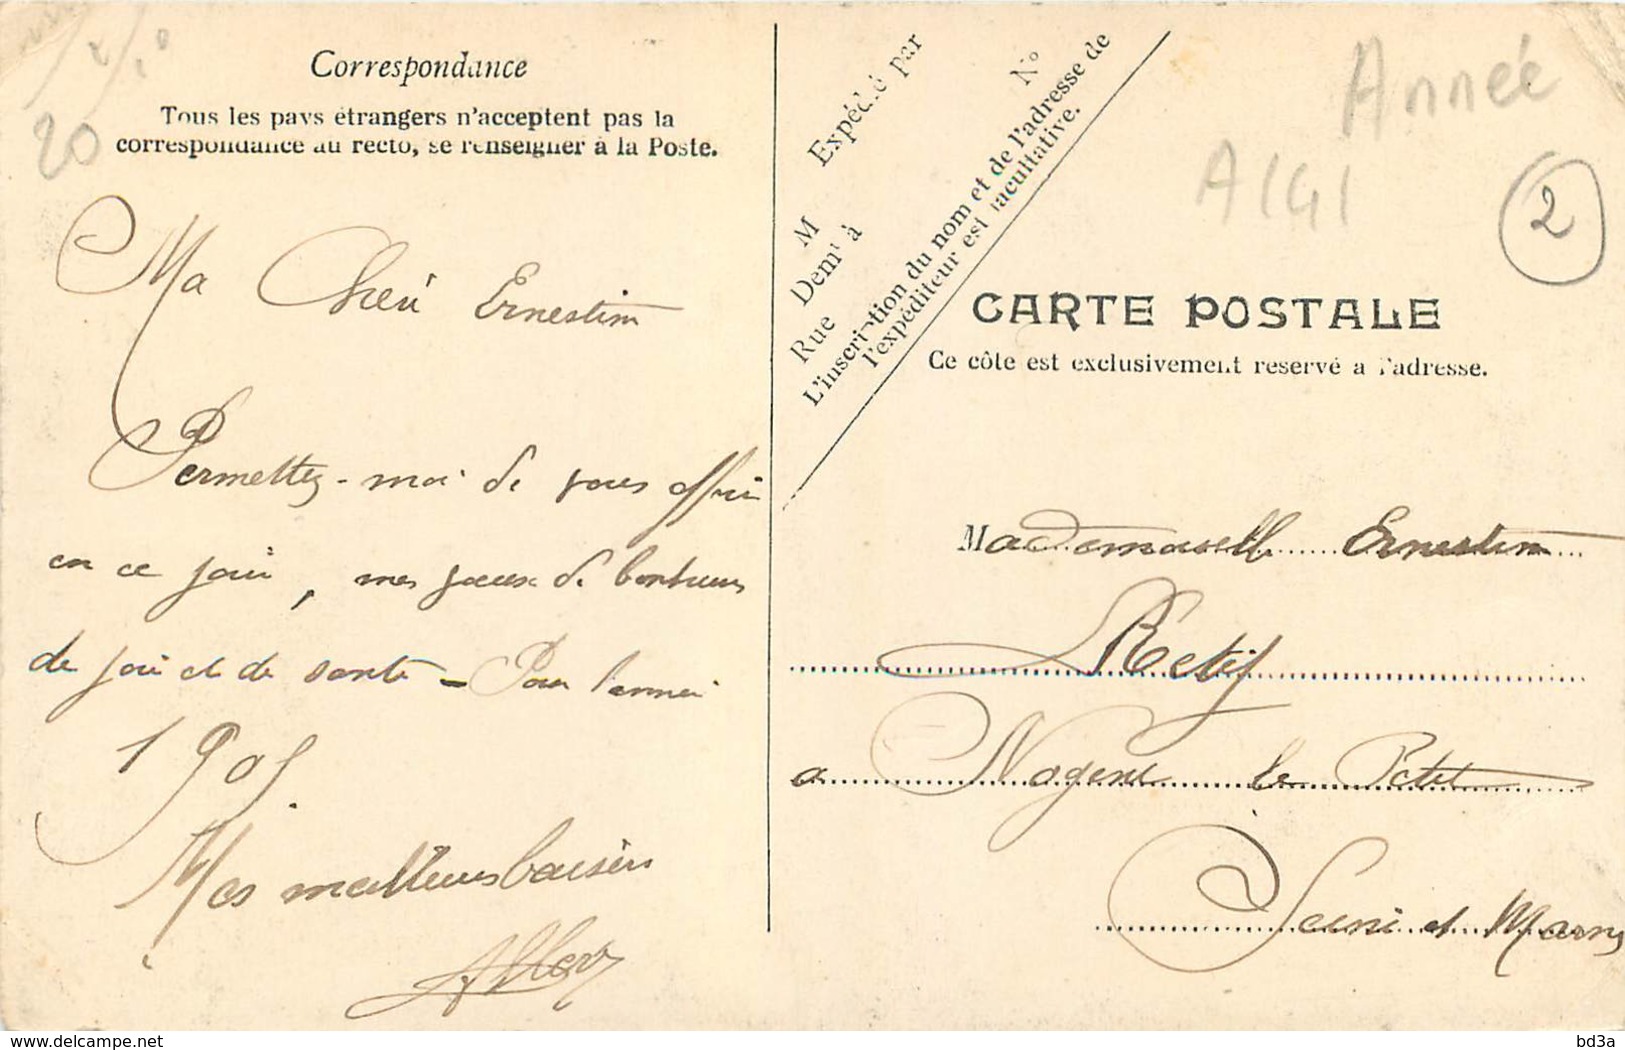 Correspondance
Tous les pays étrangers n'acceptent pas la
correspondance au recto, se renseigner à la Poste.
20
Ma Chérie Ernestine
Permettez-moi de vous offrir
en ce jour, mes voeux de bonheur
de joie et de santé - Pour l'année
1905.
Mes meilleurs baisers
Expédié par
M
N°
Demt à
Rue
L'inscription du nom et de l'adresse de
l'expéditeur est facultative.
Année
A191
2
CARTE POSTALE
Ce côté est exclusivement reservé a l'adresse.
Mademoiselle Ernestine
Retif
a Nogent le Petit
Seine et Marne
www.delcampe.net
bd3a